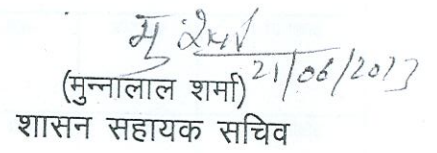 21/06/2013
(मुन्नालाल शर्मा)
शासन सहायक सचिव